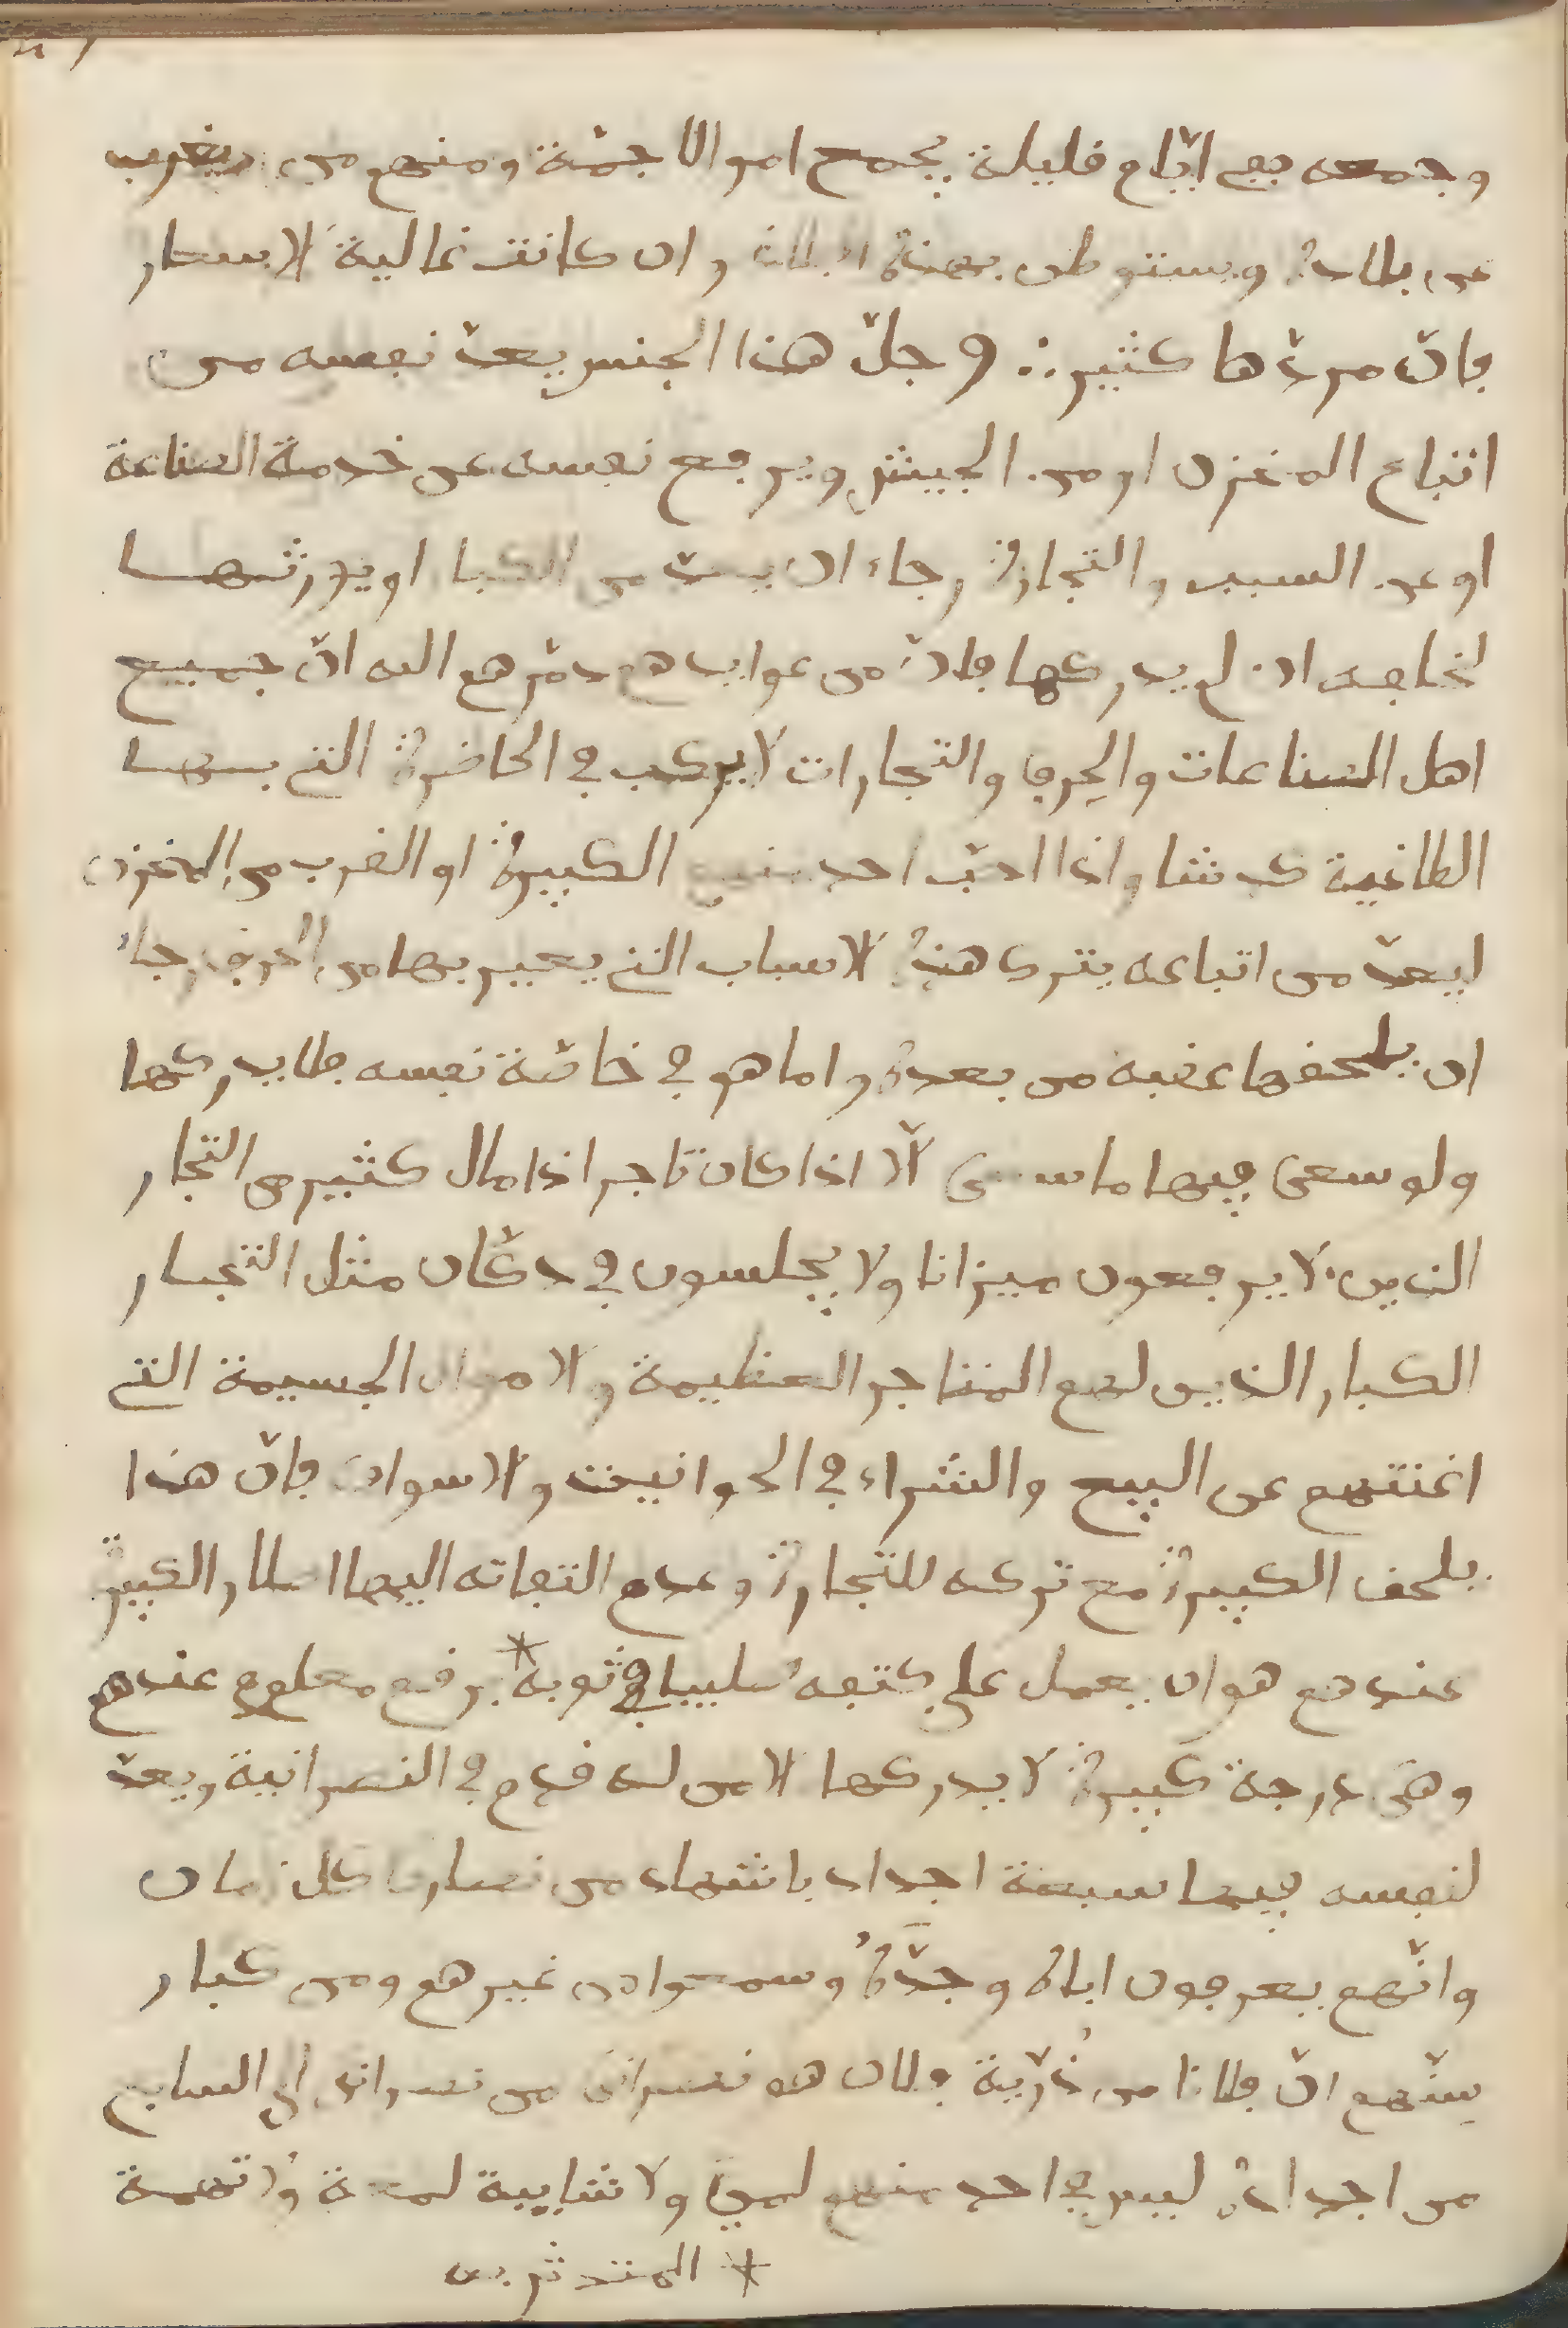 وجمعه ففى ايّام قليلة يجمع اموالا جمّة ومنهم من يتغرب
عن بلاده ويستوطن بهذه البلاد وان كانت غالية الاسعار
فانّ مردّها كثير ؞ وجلّ هذا الجنس يعدّ نفسه من
اتباع المخزن او من الجيش ويرفع نفسه عن خدمة الصناعة
او عن السبب والتجارة رجاء ان يعدّ من الكبار او يورثها
لخلفه ان لم يدركها فلانّ من عوايدهم دمّرهم الله انّ جميع
اهل الصناعات والحرف والتجارات لا يركب في الحاضرة التى بها
الطاغية كدشا واذا احبّ احد منهم الكبيرة او القرب من المخزن
ليعدّ من اتباعه يترك هذه الاسباب التى يعيير بها من الحرف رجاء
ان يلحقها عقبه من بعده واما هو في خاصّة نفسه فلا يدركها
ولو سعى فيها ما سعى الّا اذا كان تاجرا ذا مال كثير من التجار
الذين لا يرفعون ميزانا ولا يجلسون في دكّان مثل التجار
الكبار الذين لهم المتاجر العظيمة والاموال الجسيمة التى
اغنتهم عن البيع والشراء في الحوانيت والاسواق فانّ هذا
يلحق الكبيرة مع تركه للتجارة وعدم التفاته اليها اصلا والكبيرة
عندهم هو ان يعمل على كتفه صليبا في ثوبه * برقم معلوم عندهم
وهى درجة كبيرة لا يدركها الا من له قدم في النصرانية ويعدّ
لنفسه فيها سبعة اجداد باشهاد من نصارى كل زمان
وانّهم يعرفون اباه وجدّه وسمعوا من غيرهم ومن كبار
سنّهم انّ فلانا من ذرّية فلان هو نصرانى من نصرانى الى السابع
من اجداده ليس في احد منهم لميّ ولا شايبة لمحة ولا تهمة
* المتدثر به